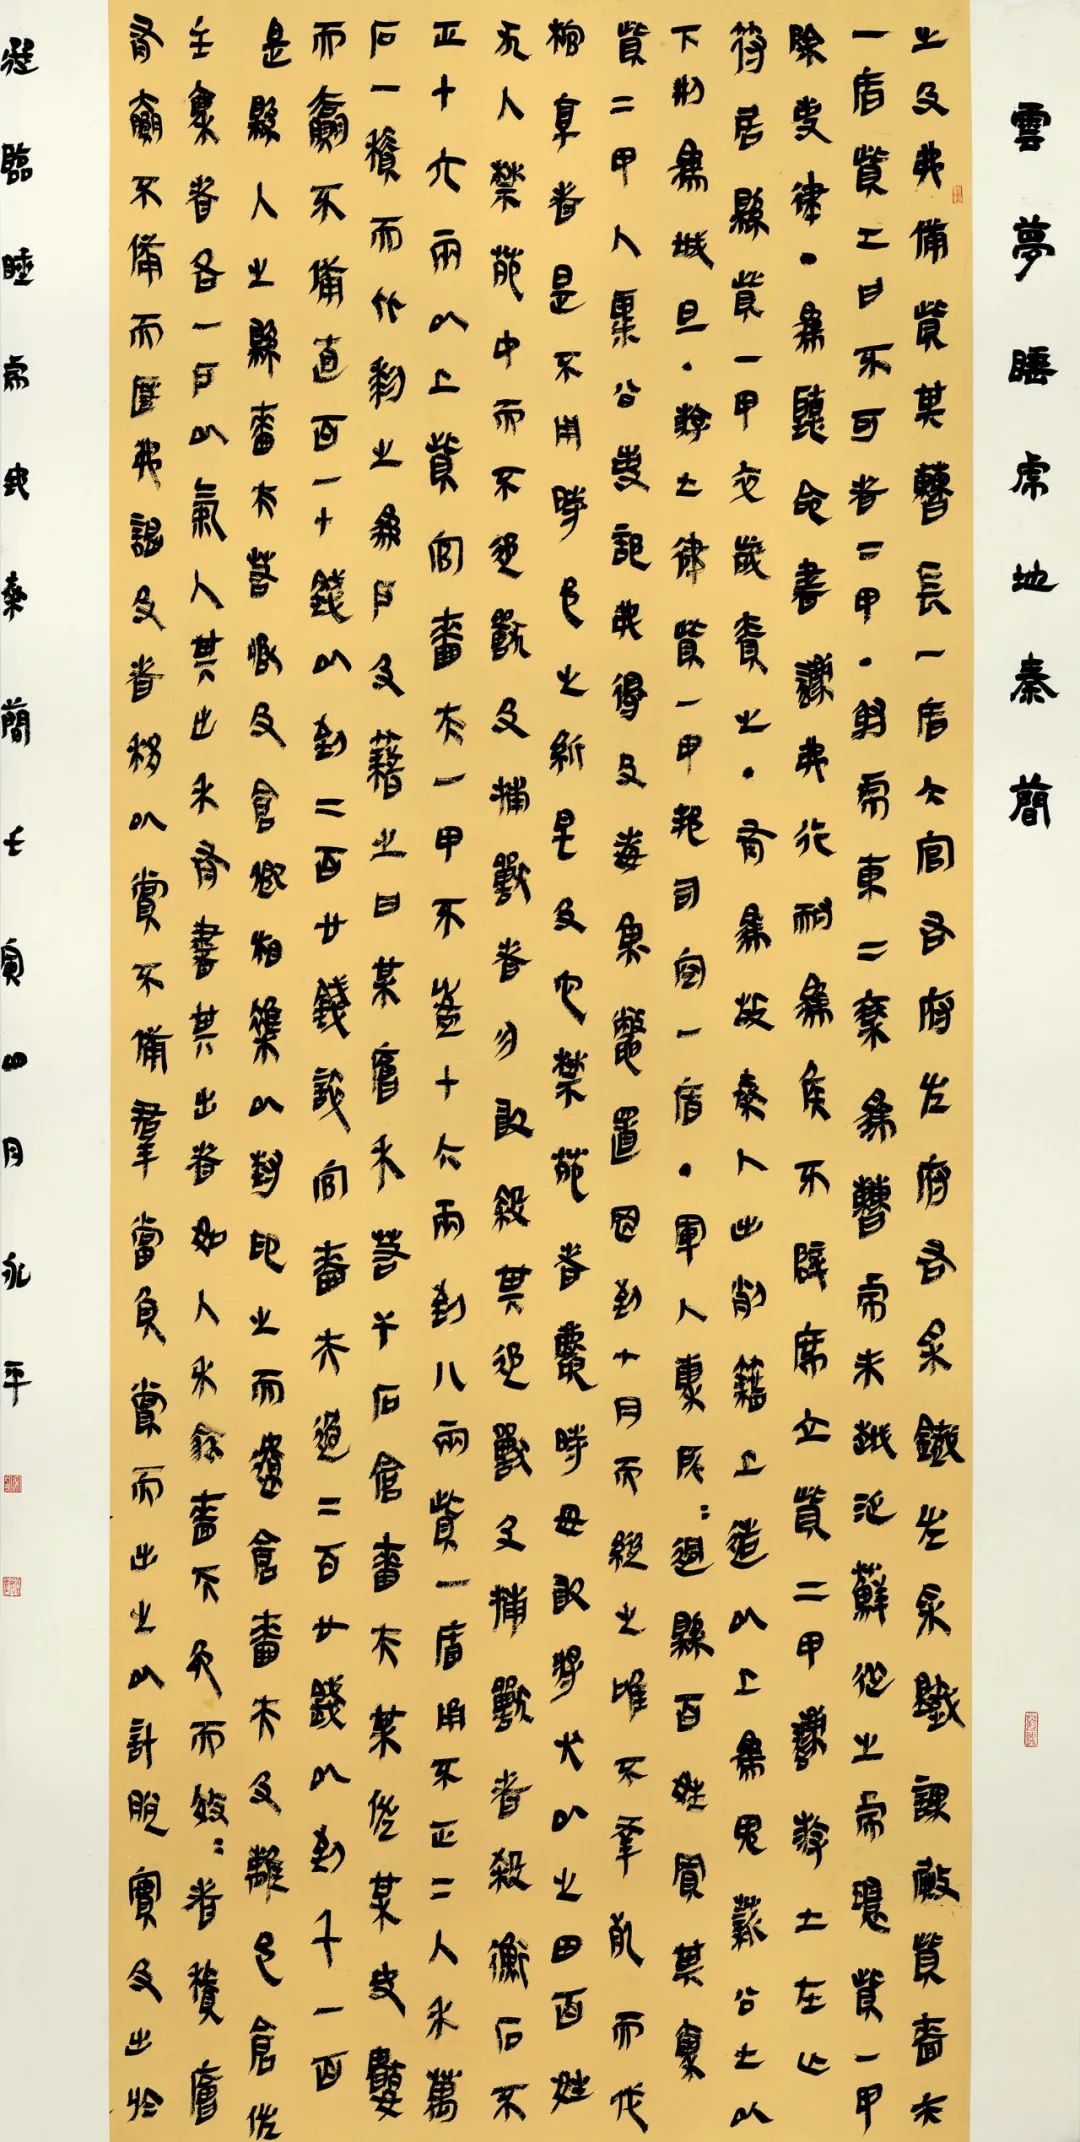 雲夢睡虎地秦簡
之及弗備貲其曹長一盾大官右府左府右采鐵左采鐵課殿貲嗇夫
一盾貲工曰不可者二甲·射虎車二乘為曹虎未越泛蘚從之虎環貲一甲
除吏律·為聽命書灋弗行耐為侯不辟席立貲二甲灋游士在亡
符居縣貲一甲卒歲責之·有為故秦人出削籍上造以上為鬼薪公士以
下刑為城旦·游士律貲一甲邦司空一盾·軍人稟所=過縣百姓買其稟
貲二甲入粟公吏部弗得及毒魚鱉置罔到十月而縱之唯不幸死而伐
棺享者是不用時邑之紤皂及它禁苑者麛時毋敢將犬以之田百姓
犬入禁苑中而不追獸及捕獸者勿敢殺其追獸及捕獸者殺衡石不
正十六兩以上貲官嗇夫一甲不盈十六兩到八兩貲一盾甬不正二入禾萬
石一積而比黎之為戶及籍之曰某廥禾若干石倉嗇夫某佐某史
而贏不備直百一十錢以到二百廿錢誶官嗇夫過二百廿錢以到千一百
是縣入之縣嗇夫若丞及倉鄉相雜以封印之而遺倉嗇夫及離邑倉佐
主稟者各一戶以氣人其出禾有書其出者如入禾然嗇夫免而效=者積廥
有贏不備而匿弗謁及者移以賞不備羣當負賞而出之以計脫實及出於
臨睡虎地秦簡壬寅四月永平